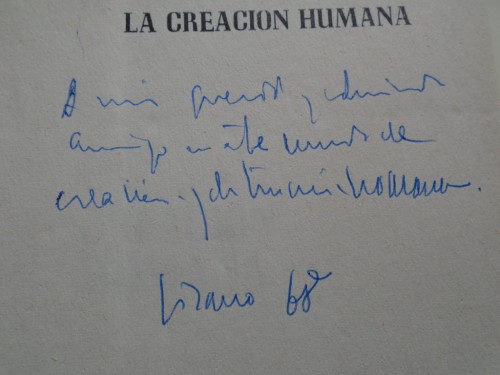 LA CREACION HUMANA
A mi querido y admirado
amigo en este mundo de
creación y destrucción humana.
Lizano 68